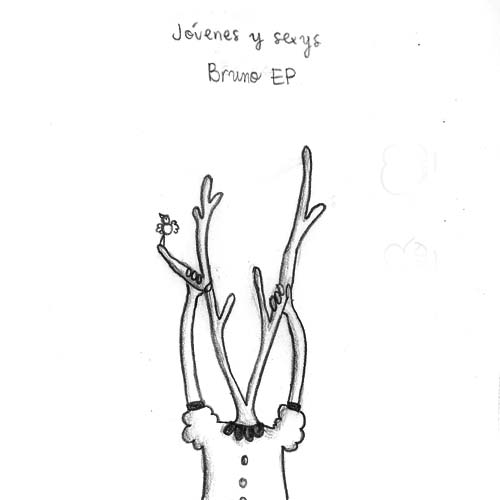 Jóvenes y sexys
Bruno EP